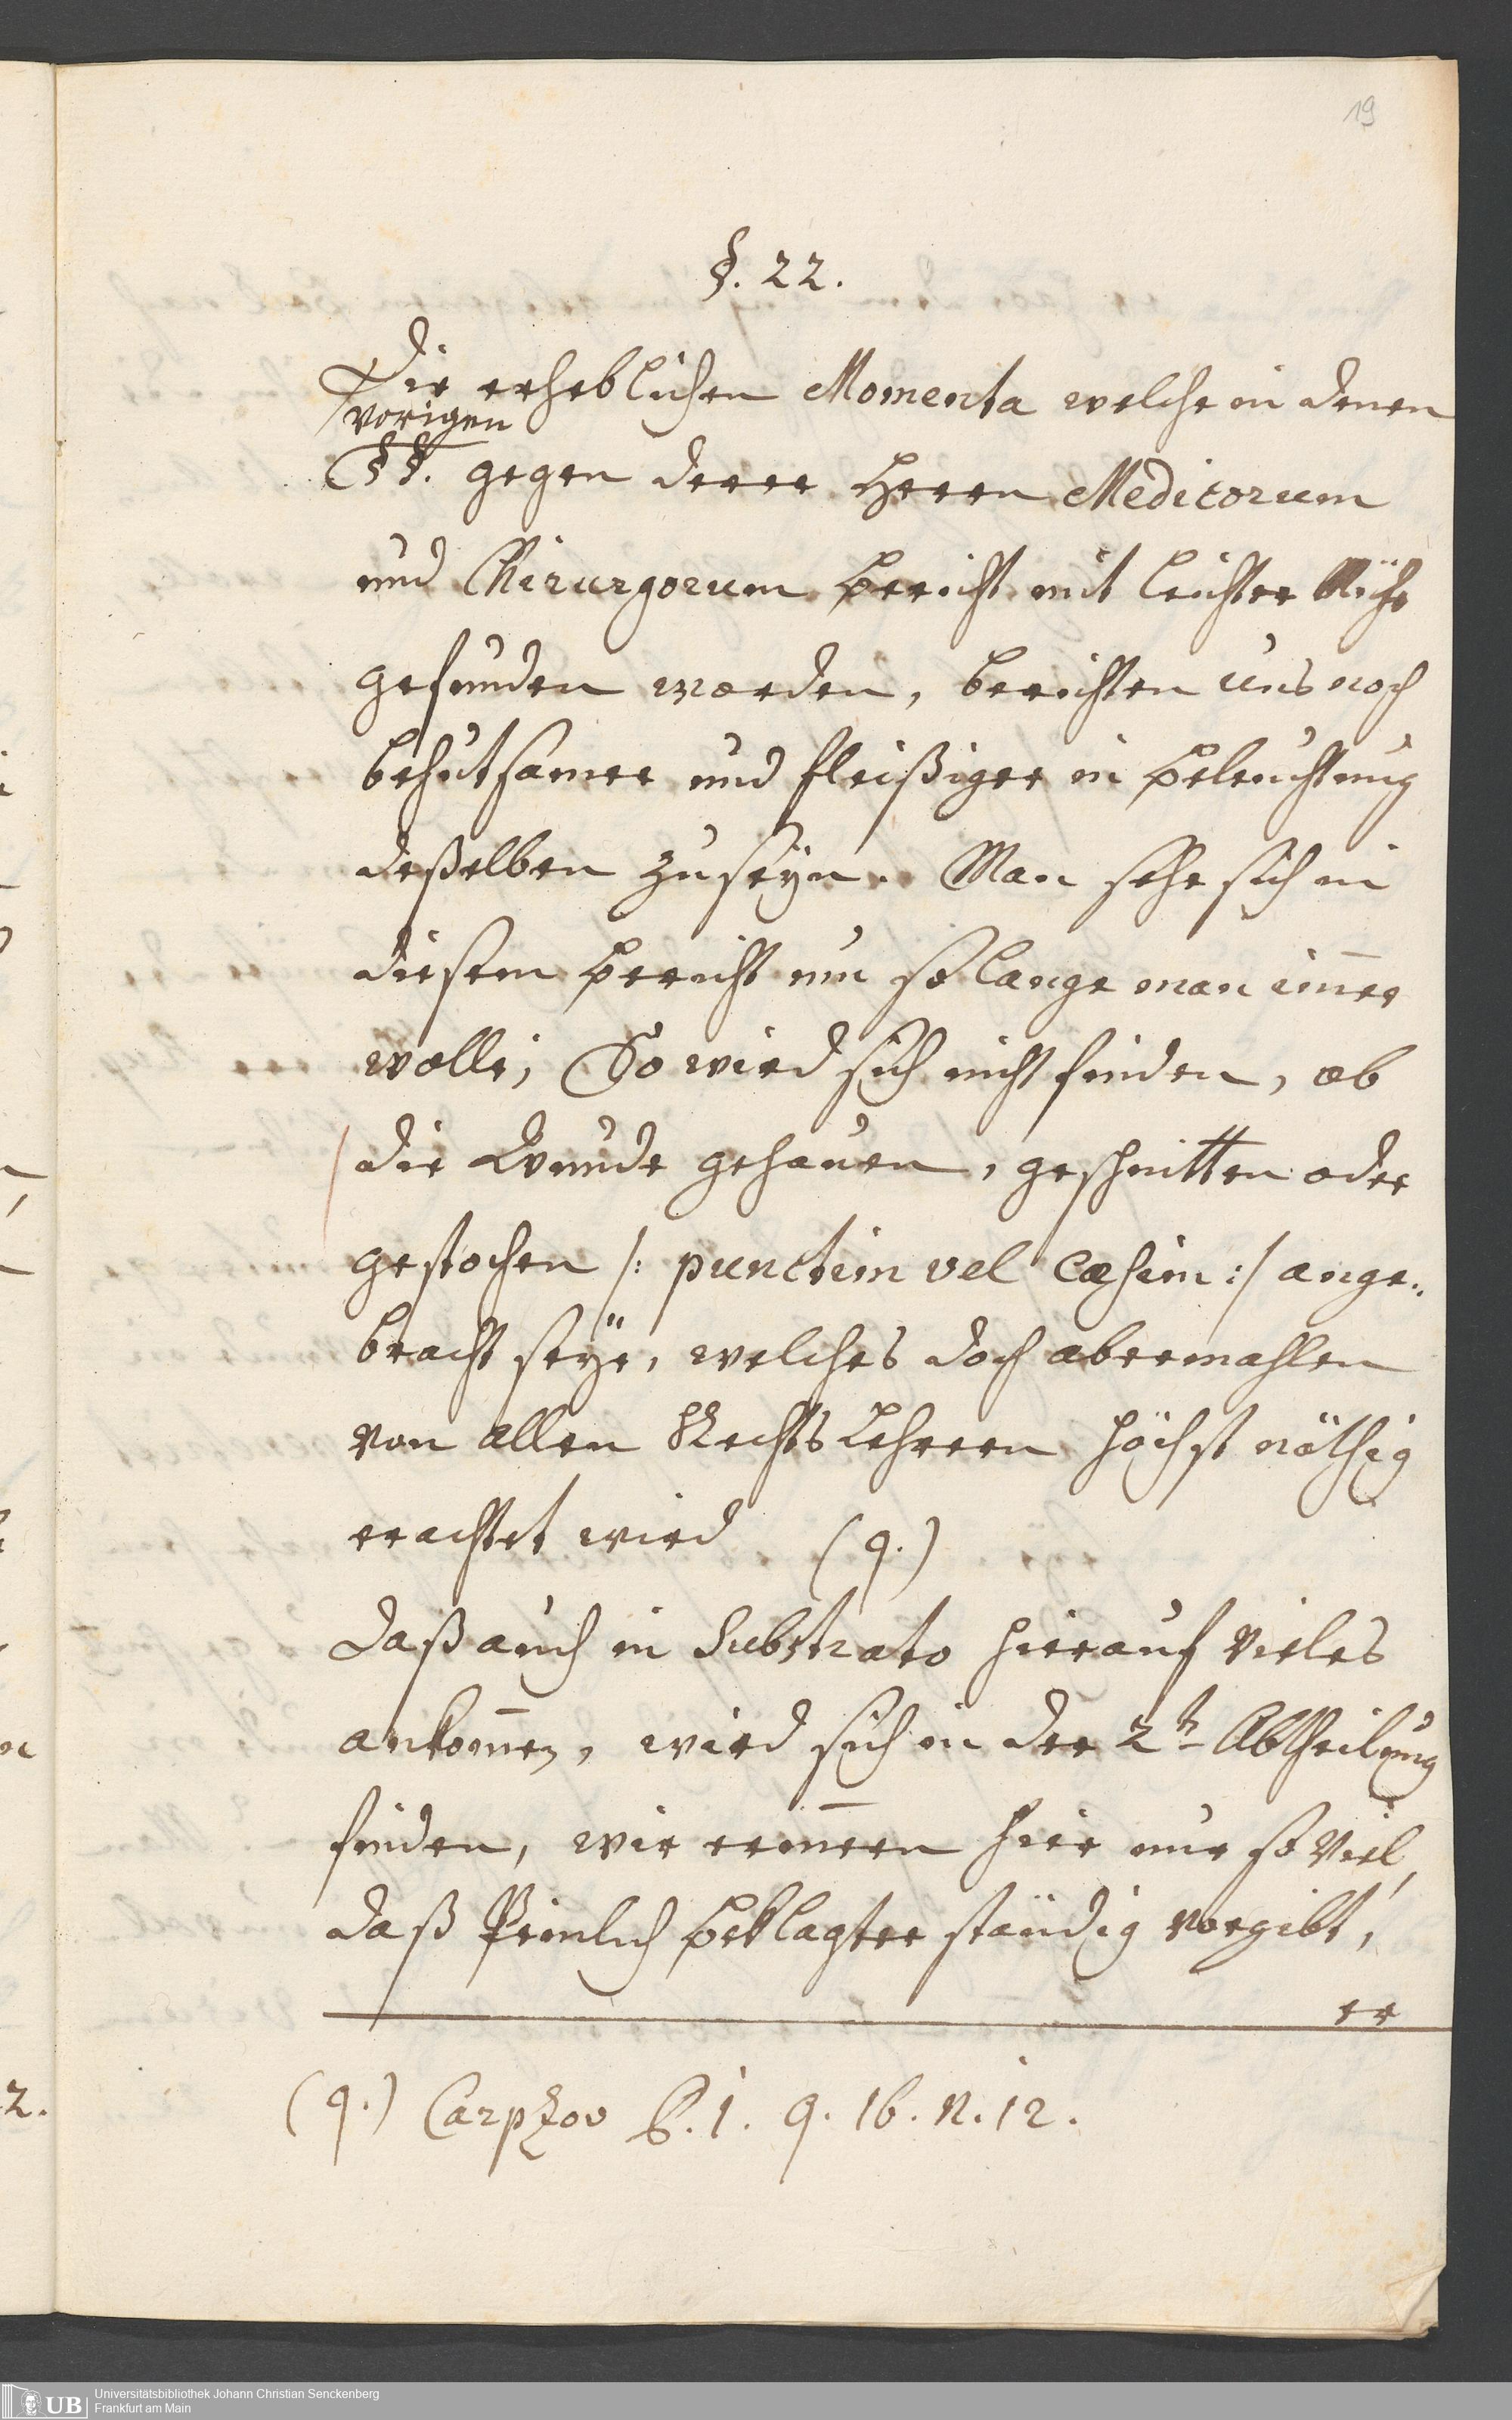 19
§. 22.
Die erheblichen Momenta welche in denen
vorigen
§§. gegen derer Herren Medicorum
und Chirurgorum Bericht mit leichter Mühe
gefunden worden, berichten uns noch
behutsamer und fleißiger in Beleuchtung
deßelben zu seÿn. Man sehe sich in
diesem Bericht um so lange man im̄er
wolle; So wird sich nicht finden, ob
die Wunde gehauen, geschnitten oder
gestochen /: punctim vel cæsim :/ ange„
bracht seÿe, welches doch abermahlen
von allen Rechts Lehrern höchst nöthig
erachtet wird (q.)
daß auch in Substrato hierauf vieles
ankom̄en, wird sich in der 2tn Abtheilung
finden, wir erin̄ern hier nur so viel,
daß Peinlich Beklagter ständig vorgibt,
er
(q.) Carpzov P. 1. q. 16. n. 12.
2.
Universitätsbibliothek Johann Christian Senckenberg
Frankfurt am Main
UB